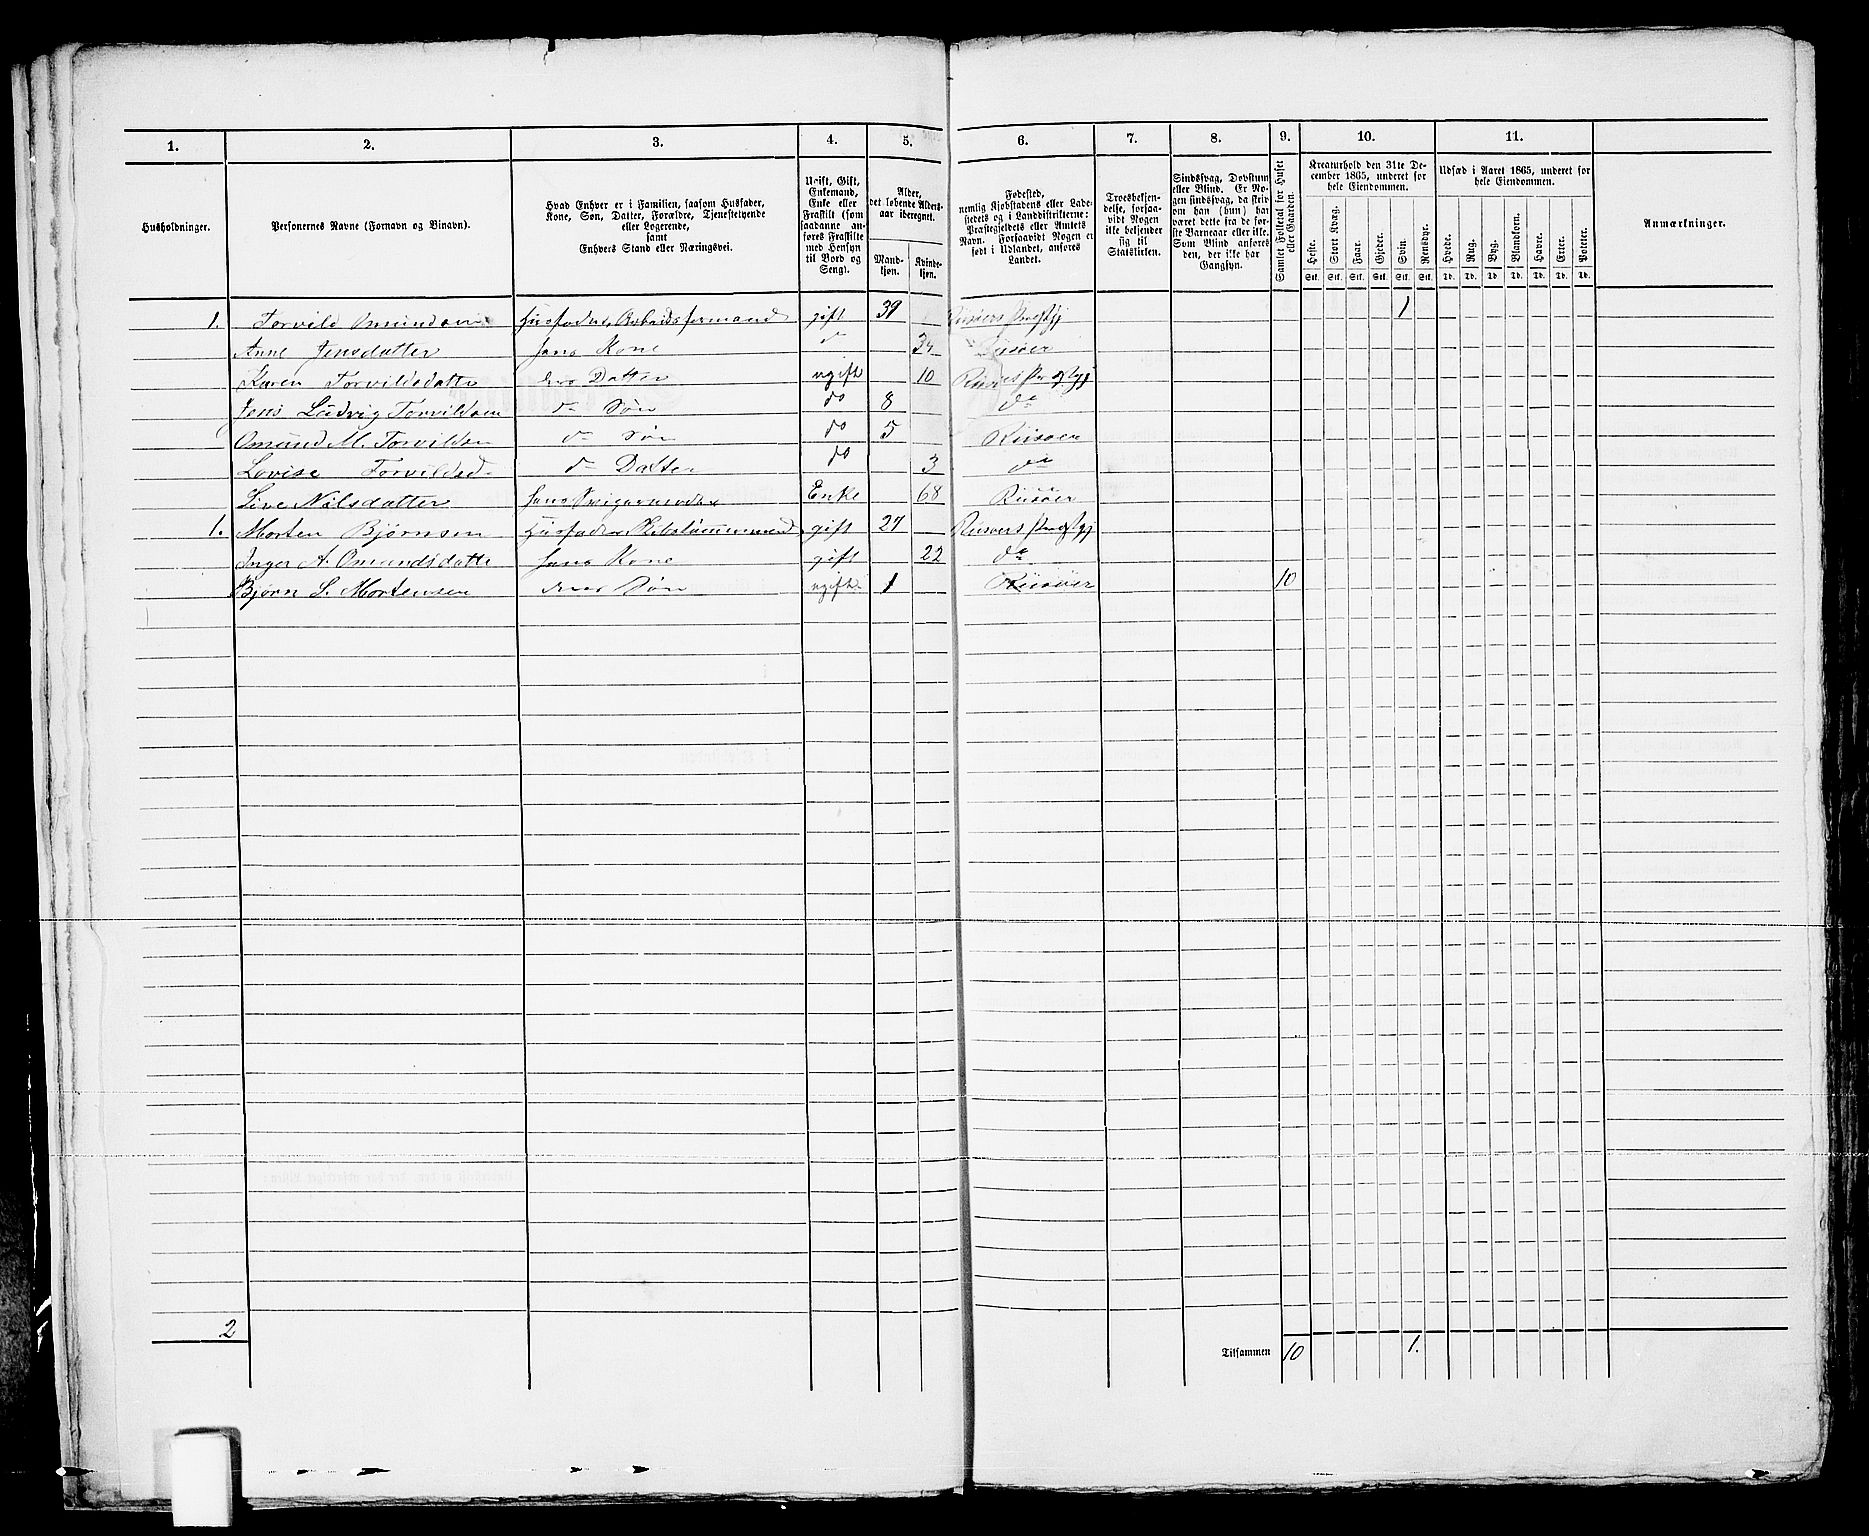 1. 2. 3. 4. 5. 6. 7. 8. 9. 10. 11.
Husholdninger.
Personernes Navne (Fornavn og Binavn).
Hvad Enhver er i Familien, saasom Husfader,
Kone, Søn, Datter, Forældre, Tjenestetyende
eller Logerende,
samt
Enhvers Stand eller Næringsvei.
Ugift, Gift,
Enkemand,
Enke eller
Fraskilt (som
saadanne an-
føres Fraskilte
med Hensyn
til Bord og
Seng).
Alder,
det løbende Alders-
aar iberegnet.
Mand-
kjøn.
Kvinde-
kjøn.
Fødested,
nemlig Kjøbstadens eller Lade-
stedets og i Landdistrikterne:
Præstegjeldets eller Amtets
Navn. Forsaavidt Nogen er
født i Udlandet, anføres
Landet.
Troesbekjen-
delse, forsaa-
vidt Nogen
ikke bekjender
sig til
Statskirken.
Sindssvag, Døvstum
eller Blind. Er No-
gen sindssvag, da skriv
om han (hun) har
været dette fra de før-
ste Barneaar eller ikke.
Som Blind anføres
den, der ikke har
Gangsyn.
Samlet Folketal for Huset
eller Gaarden.
Kreaturhold den 31te De-
cember 1865, underet for
hele Eiendommen.
Heste. Stort Kvæg. Faar. Gjeder. Svin. Rensdyr.
Stk. Stk. Stk. Stk. Stk. Stk.
Udsæd i Aaret 1865, underet for
hele Eiendommen.
Hvede. Rug. Byg. Blandkorn. Havre. Erter. Poteter.
Td. Td. Td. Td. Td. Td. Td.
Anmærkninger.
1. Torvild Omundsen Husfader, Arbeidsformand gift 39 Riisøers Præstgj 1
Anne Jensdatter hans Kone do 34 Riisøer
Karen Torvildsdatte dres Datter ugift 10 Riisøers Præstgj
Jens Ludvig Torvildsen do Søn do 8 do
Omund M. Torvildsen do Søn do 5 Riisøer
Lovise Torvildsd. do Datter do 3 do
Sive Nilsdatter hans Svigermoder Enke 68 Riisøer
1. Morten Bjørnsen Husfader, Skibstømmermand gift 27 Riisøers Præstgj
Inger A. Omundsdatte hans Kone gift 22 do
Bjørn S. Mortensen deres Søn ugift 1 Riisøer 10
2
Tilsammen 10 1.